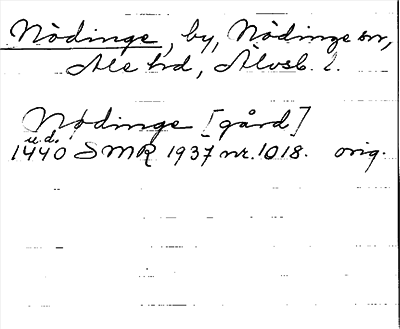 Nödinge, by, Nödinge sn,
Ale hd, Älvsb. l.
Nødinge [gård]
u.d.
1440 SMR 1937 nr. 1018. orig.